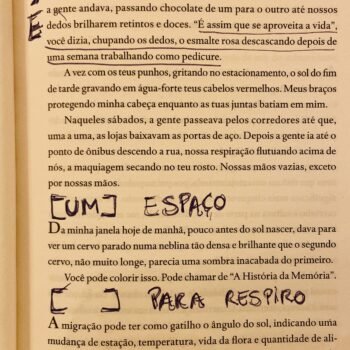 a gente andava, passando chocolate de um para o outro até nossos
E
dedos brilharem retintos e doces. “É assim que se aproveita a vida”,
você dizia, chupando os dedos, o esmalte rosa descascando depois de
uma semana trabalhando como pedicure.
A vez com os teus punhos, gritando no estacionamento, o sol do fim
de tarde gravando em água-forte teus cabelos vermelhos. Meus braços
protegendo minha cabeça enquanto as tuas juntas batiam em mim.
Naqueles sábados, a gente passeava pelos corredores até que,
uma a uma, as lojas baixavam as portas de aço. Depois a gente ia até o
ponto de ônibus descendo a rua, nossa respiração flutuando acima de
nós, a maquiagem secando no teu rosto. Nossas mãos vazias, exceto
por nossas mãos.
[UM] ESPAÇO
Da minha janela hoje de manhã, pouco antes do sol nascer, dava para
ver um cervo parado numa neblina tão densa e brilhante que o segundo
cervo, não muito longe, parecia uma sombra inacabada do primeiro.
Você pode colorir isso. Pode chamar de “A História da Memória”.
[ ] PARA RESPIRO
A migração pode ter como gatilho o ângulo do sol, indicando uma
mudança de estação, temperatura, vida da flora e quantidade de ali-